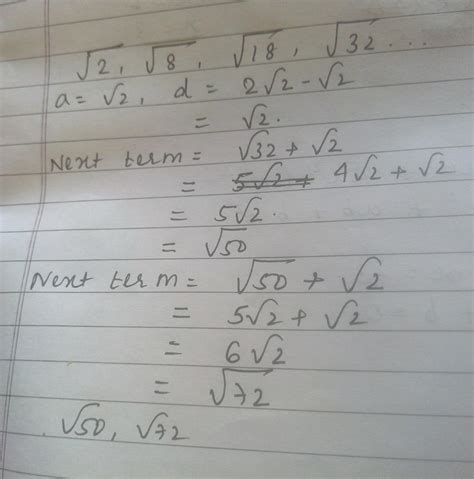 √2, √8, √18, √32 ...
a = √2, d = 2√2 - √2
= √2.
Next term = √32 + √2
= 5√2 + 4√2 + √2
= 5√2.
= √50
Next term = √50 + √2
= 5√2 + √2
= 6√2
= √72
√50, √72